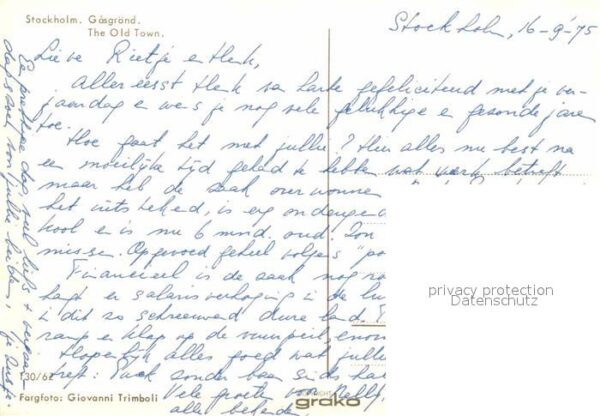 Stockholm. Gåsgränd.
The Old Town.
Stockholm, 16-9-'75
Lieve Rietje en Henk,
Allereerst Henk van harte gefeliciteerd met je ver-
jaardag en wens je nog vele gelukkige en gezonde jaren
toe.
Hoe gaat het met jullie? Hier alles nu best na
een moeilijke tijd gehad te hebben wat werk betreft
maar heb de zaak overwonnen
het uitstekend, is erg ondeugend
is nu 6 mnd. oud! Zou
missen. Opgevoed geheel volgens "po
Financieel is de zaak nog
salarisverhoging in de lu
in dit zo schreeuwend dure land.
ramp en klap op de vuurpijl, enorm
Hopelijk alles goed wat jullie
tref:
Vele groeten van
alle bekenden.
Een prettige dag veel liefs + verjaar-
dagszoen voor jullie beiden,
130/62
Fargfoto: Giovanni Trimboli
grako
privacy protection
Datenschutz